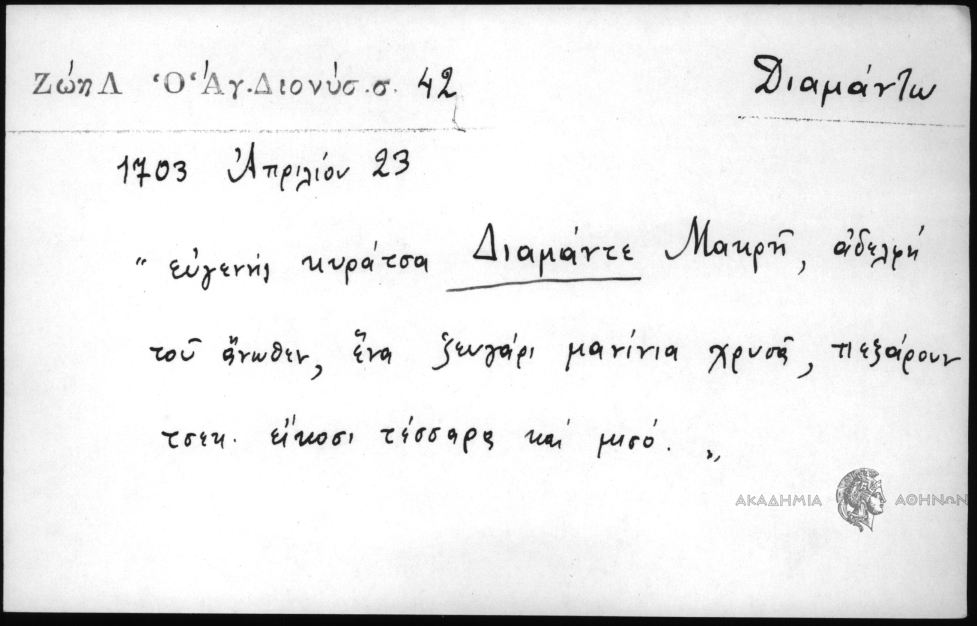 Ζώη Λ ‘Ο ‘Άγ. Διονύσ. σ. 42 Διαμάντω
1703 Ἀπριλίου 23
“ εὐγενής κυράτσα Διαμάντε Μακρῆ, ἀδελφή
τοῦ ἄνωθεν, ἕνα ζευγάρι μανίνια χρυσᾶ, πεζάρουν
τσεκ. εἴκοσι τέσσαρα καί μισό. „
ΑΚΑΔΗΜΙΑ ΑΘΗΝΩΝ